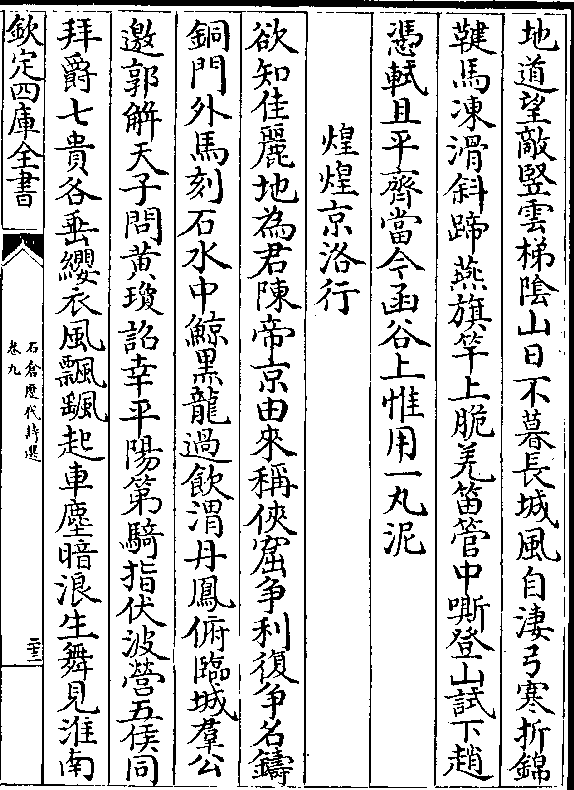 地道望敵豎雲梯陰山日不暮長城風自淒弓寒折錦
鞬馬凍滑斜蹄燕旗竿上脆羌笛管中嘶登山試下趙
憑軾且平齊當今函谷上惟用一丸泥
煌煌京洛行
欲知佳麗地為君陳帝京由來稱俠窟争利復争名鑄
銅門外馬刻石水中鯨黑龍過飲渭丹鳳俯臨城羣公
邀郭解天子問黄瓊詔幸平陽第騎指伏波營五侯同
拜爵七貴各垂纓衣風飄飄起車塵暗浪生舞見淮南
欽定四庫全書
石倉歷代詩選
卷九
二十三